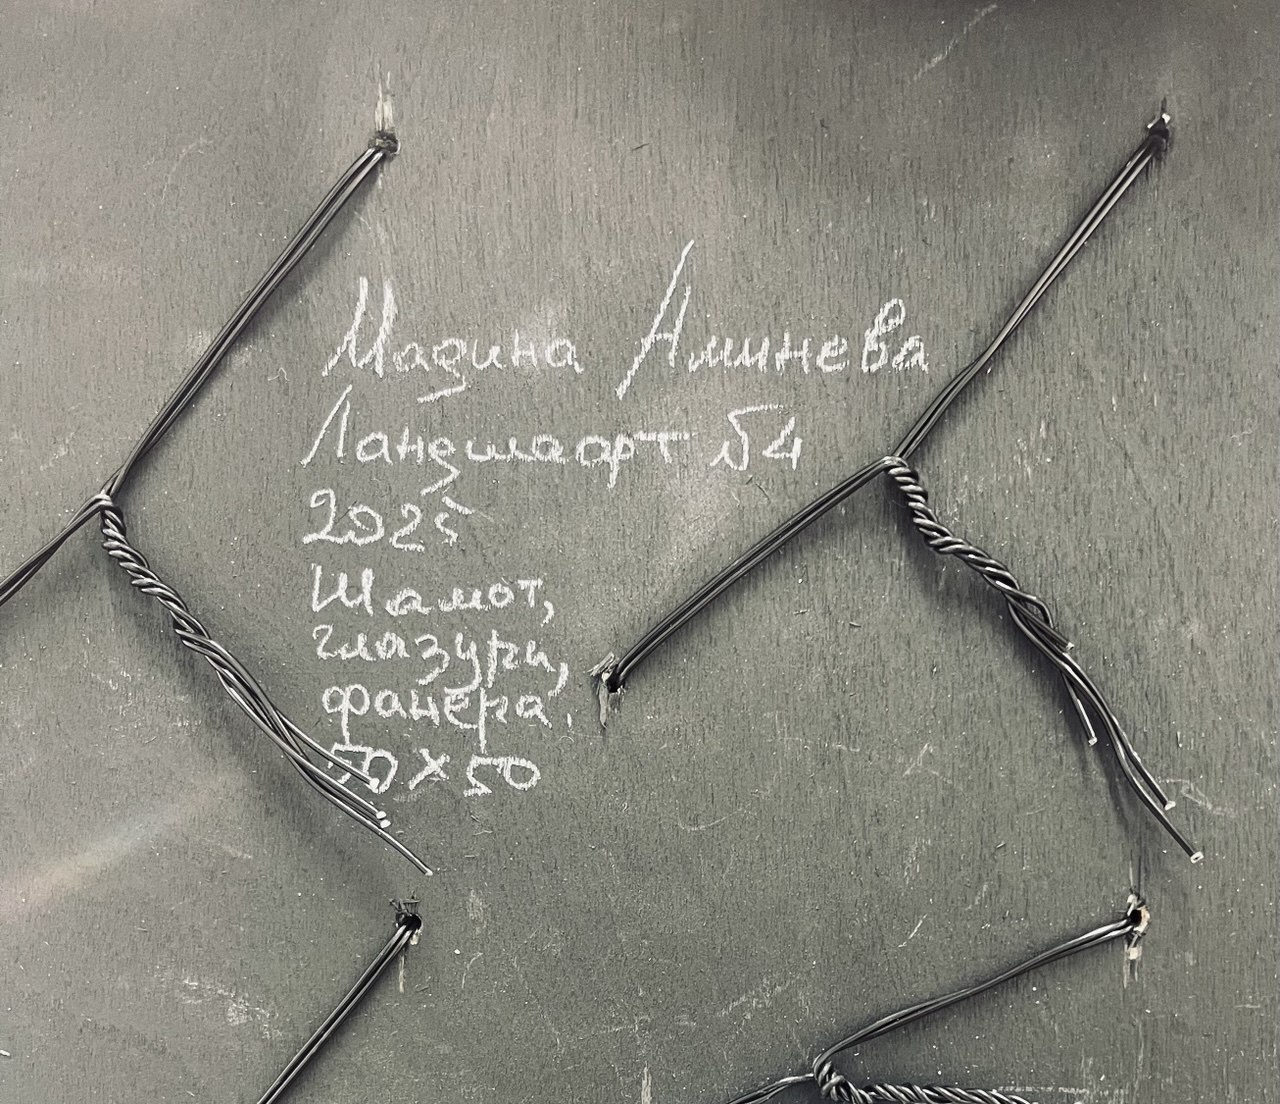 Мадина Аминева
Ландшаарт №4
2025
Шамот,
глазури,
фанера.
50×50